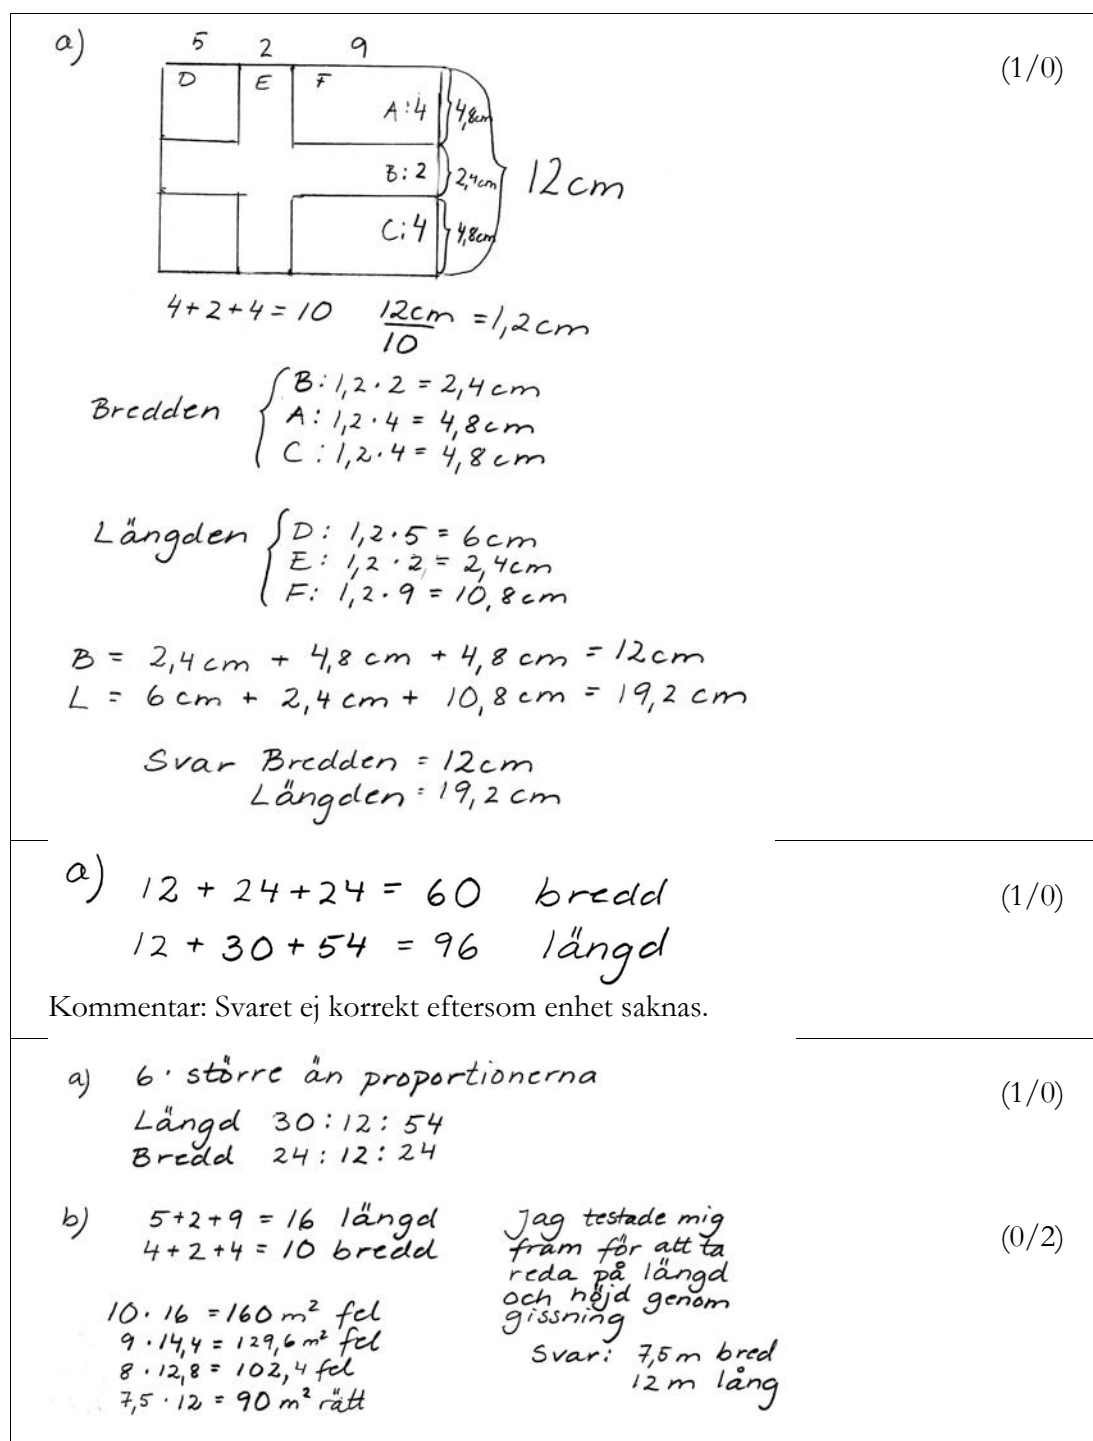 a) 5 2 9 (1/0)
D E F
A:4 4,8cm
B:2 2,4cm 12cm
C:4 4,8cm
4+2+4=10 12cm/10 = 1,2cm
Bredden B: 1,2·2 = 2,4cm
A: 1,2·4 = 4,8cm
C: 1,2·4 = 4,8cm
Längden D: 1,2·5 = 6cm
E: 1,2·2 = 2,4cm
F: 1,2·9 = 10,8cm
B = 2,4cm + 4,8cm + 4,8cm = 12cm
L = 6cm + 2,4cm + 10,8cm = 19,2cm
Svar Bredden = 12cm
Längden = 19,2cm
a) 12 + 24 + 24 = 60 bredd (1/0)
12 + 30 + 54 = 96 längd
Kommentar: Svaret ej korrekt eftersom enhet saknas.
a) 6· större än proportionerna (1/0)
Längd 30:12:54
Bredd 24:12:24
b) 5+2+9 = 16 längd (0/2)
4+2+4 = 10 bredd
10·16 = 160 m² fel
9·14,4 = 129,6 m² fel
8·12,8 = 102,4 fel
7,5·12 = 90 m² rätt
Jag testade mig
fram för att ta
reda på längd
och höjd genom
gissning
Svar: 7,5m bred
12m lång